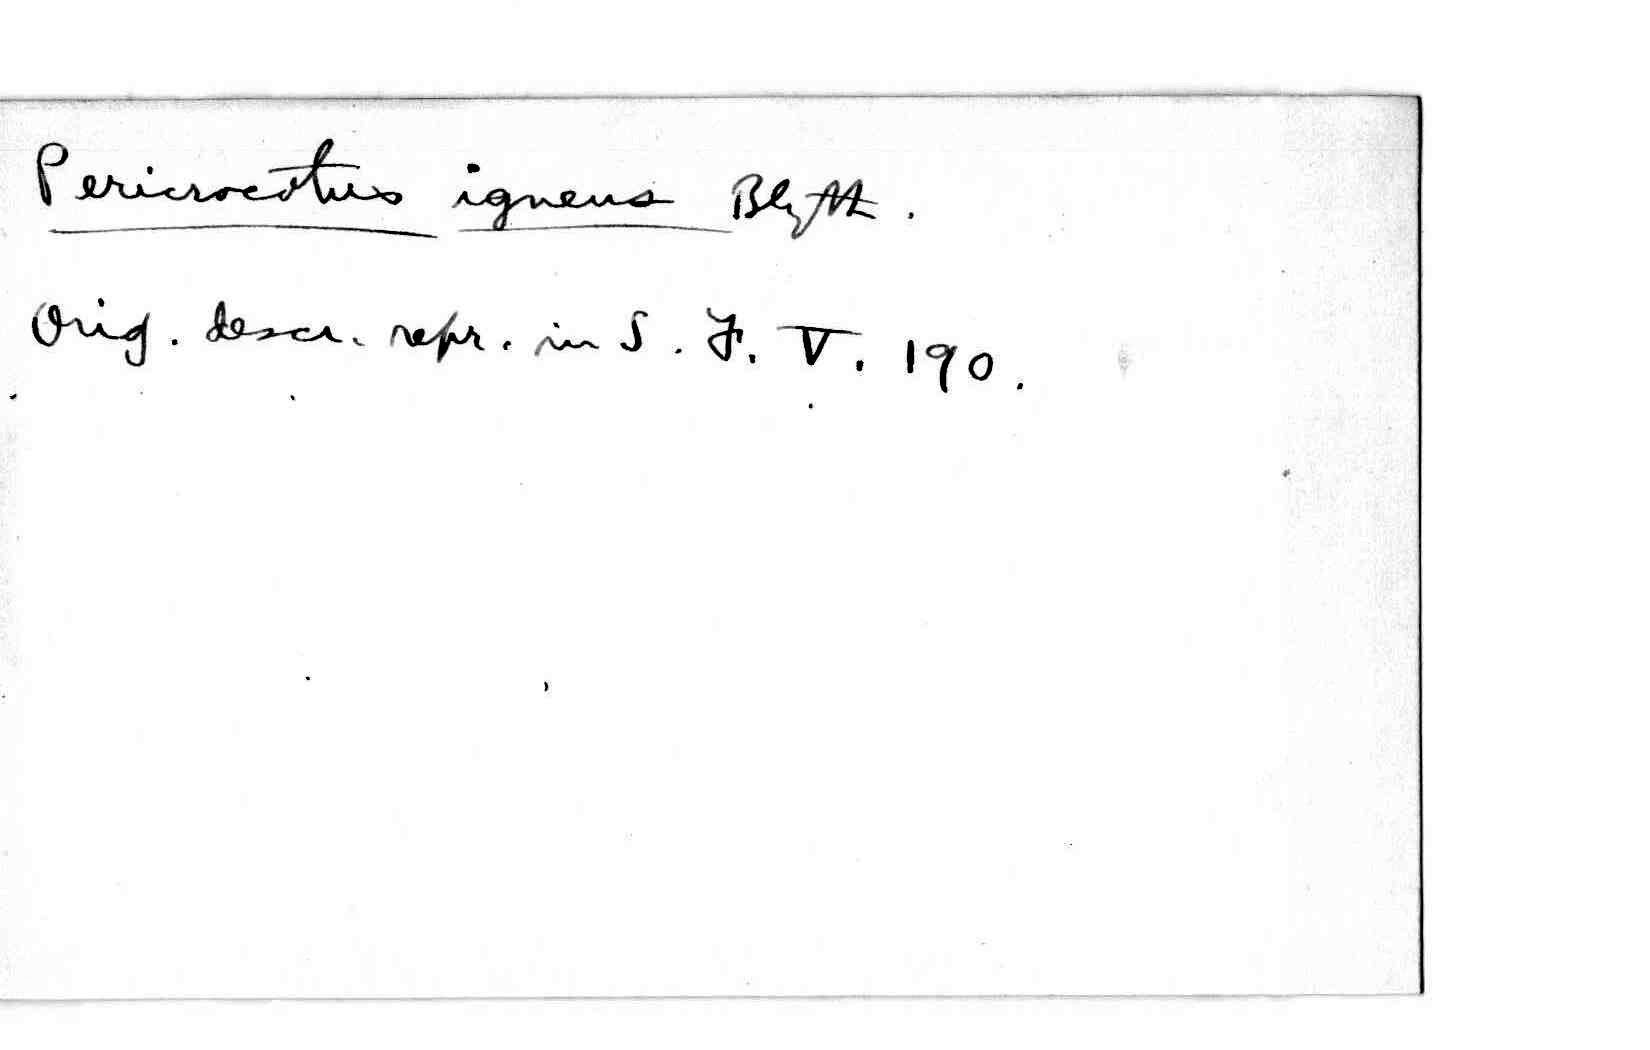 Pericrocotus igneus Blyth.
Orig. descr. repr. in S. F. V. 190.